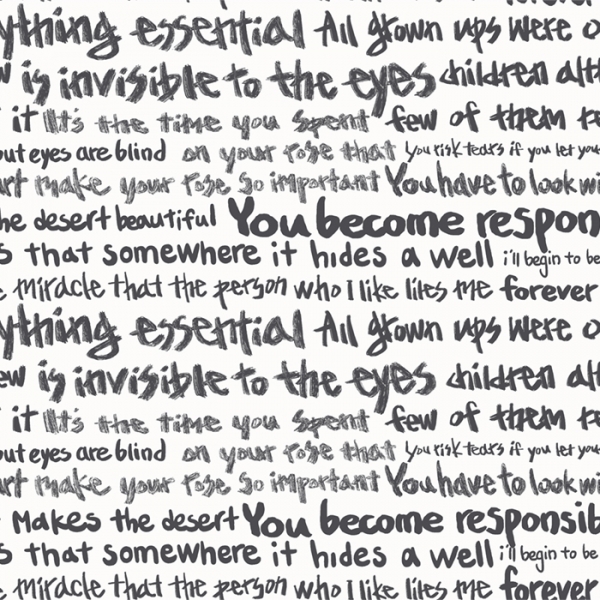 ything essential All grown ups were o
w is invisible to the eyes children alth
it It's the time you spent few of them re
out eyes are blind on your rose that You risk tears if you let you
art make your rose so important You have to look wi
he desert beautiful You become respon
s that somewhere it hides a well i'll begin to be
e miracle that the person who I like likes me forever
ything essential All grown ups were o
ew is invisible to the eyes children alth
it It's the time you spent few of them re
out eyes are blind on your rose that You risk tears if you let you
art make your rose so important You have to look wi
Makes the desert You become responsib
s that somewhere it hides a well i'll begin to be
e miracle that the person who I like likes me forever